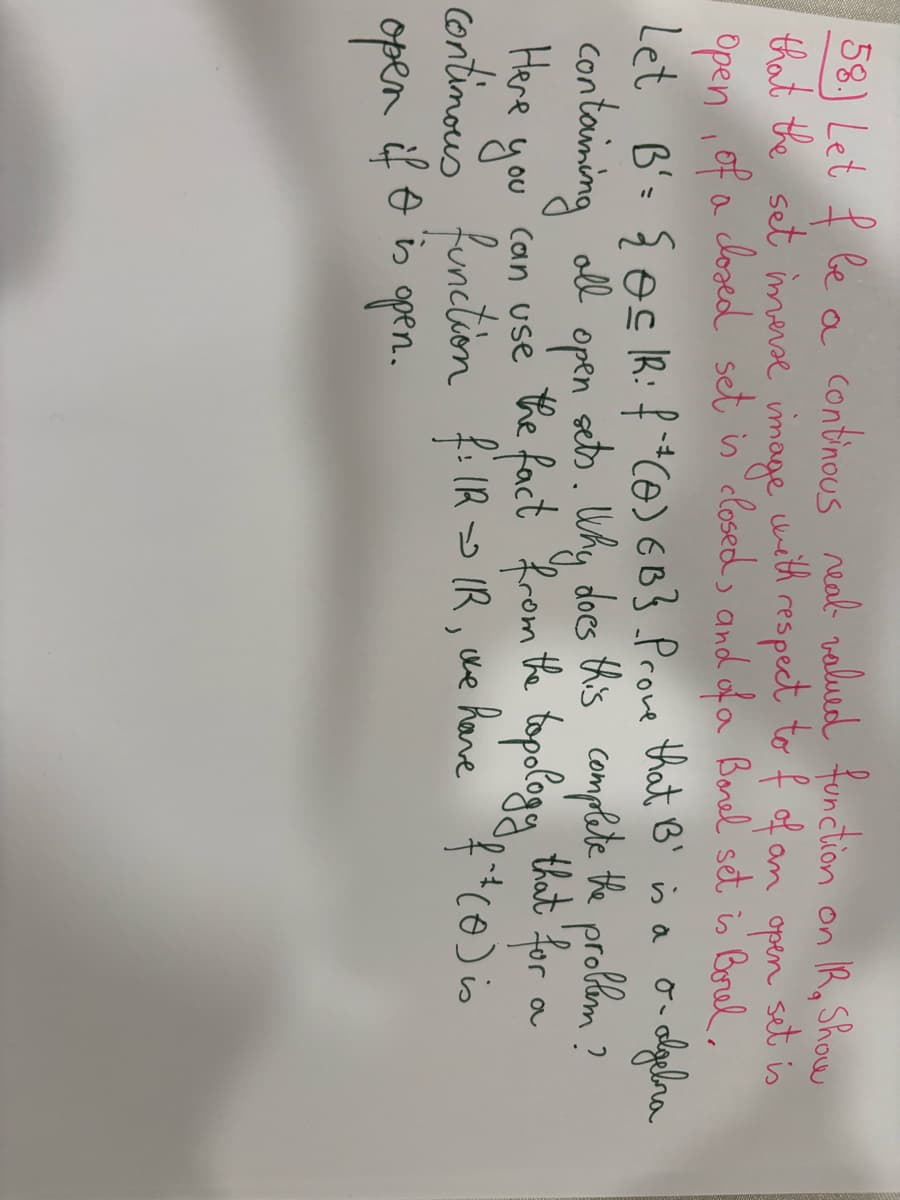 58.) Let f be a continous real-valued function on IR, Show
that the set inverse image with respect to f of an open set is
open, of a closed set is closed, and of a Borel set is Borel.
Let B' = { O ⊆ IR : f⁻¹(O) ∈ B}. Prove that B' is a σ-algebra
containing all open sets. Why does this complete the problem?
Here you can use the fact from the topology that for a
continous function f: IR → IR, we have f⁻¹(O) is
open if O is open.